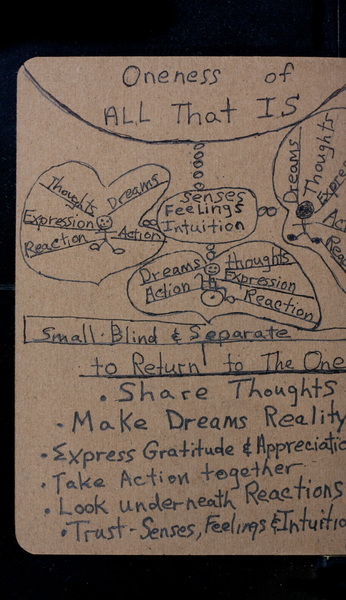 Oneness of
ALL That IS
Thoughts
Dreams
Expression
Reaction
Action
Senses
Feelings
Intuition
Dreams
Thoughts
Dreams
Action
thoughts
Expression
Reaction
Small-Blind & Separate
to Return to The One
• Share Thoughts
• Make Dreams Reality
• Express Gratitude & Appreciatio
• Take Action together
• Look underneath Reactions
• Trust - Senses, Feelings & Intuitio